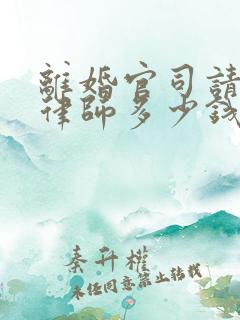 離婚官司請
律師多少錢
秦升權
未經同意禁止转载